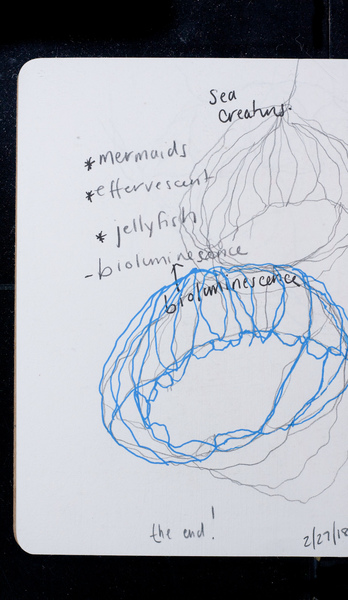 Sea
Creatures.
* mermaids
* effervescent
* jellyfish
- bioluminesance
bioluminescence
the end!
2/27/18